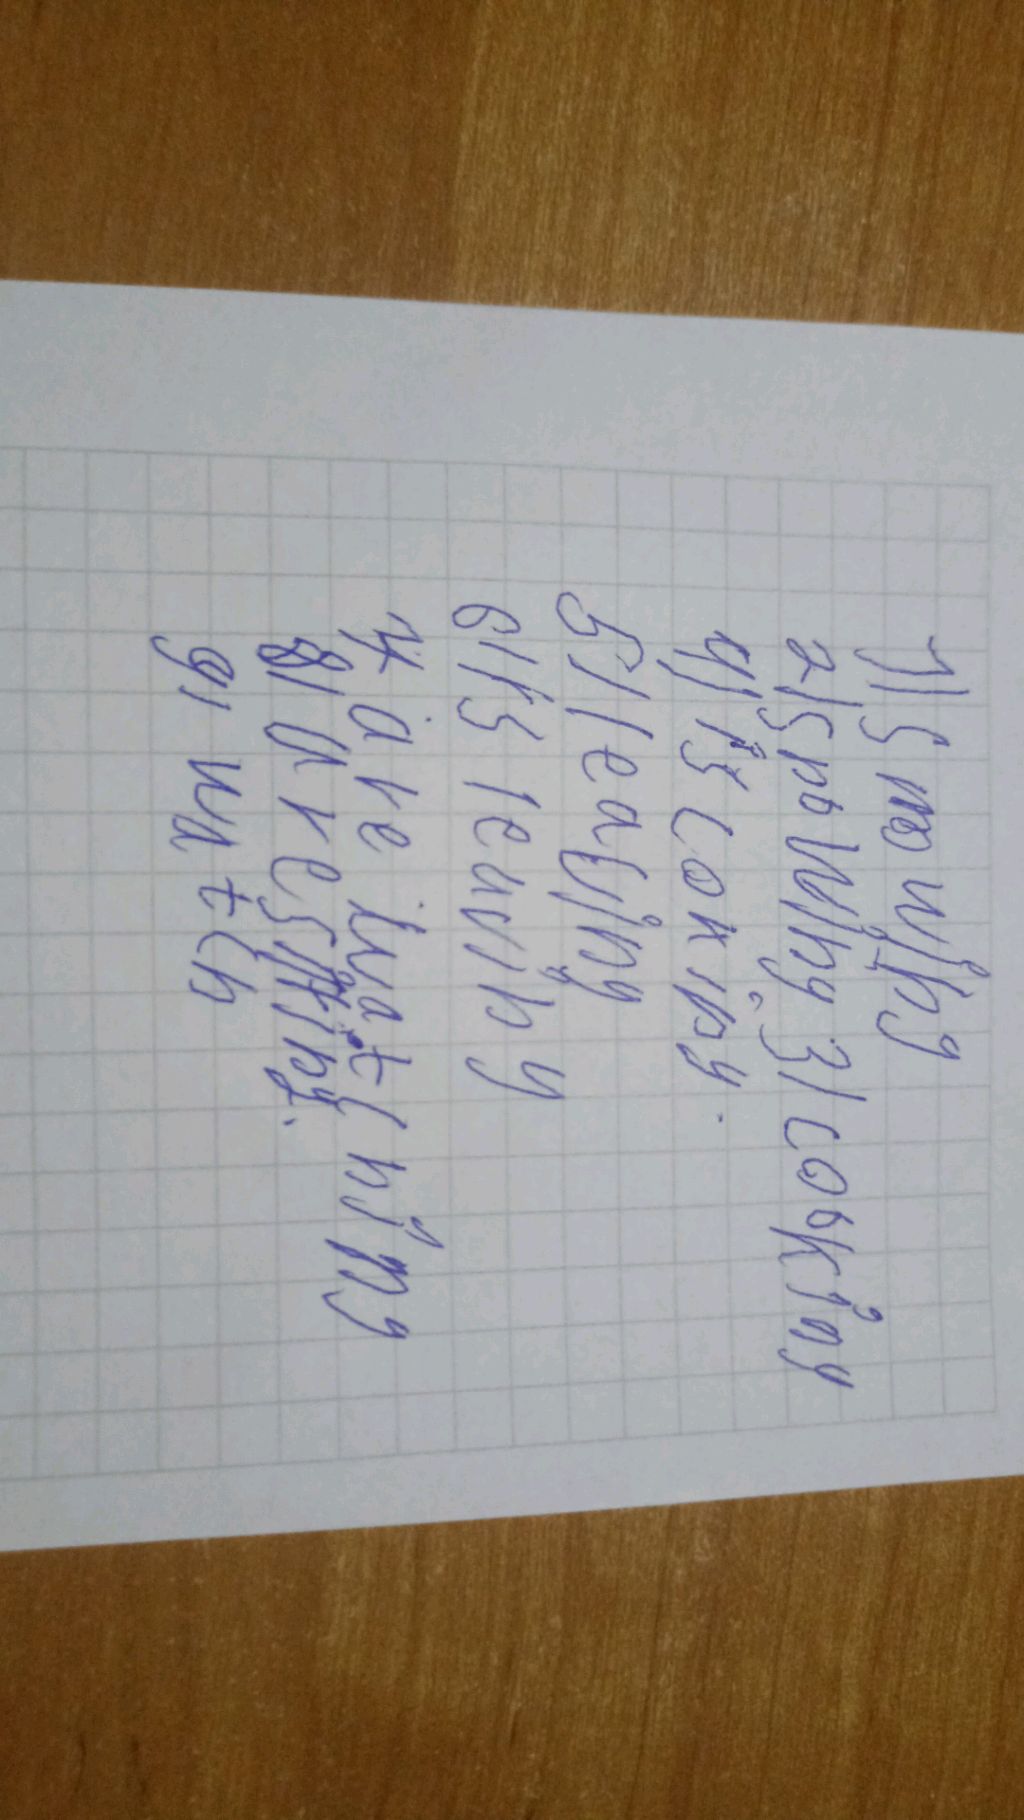 1) snowing
2) snowing 3) cooking
4) is cooking.
5) leaving
6) is leaving
7 are watching
8) are
9) watch